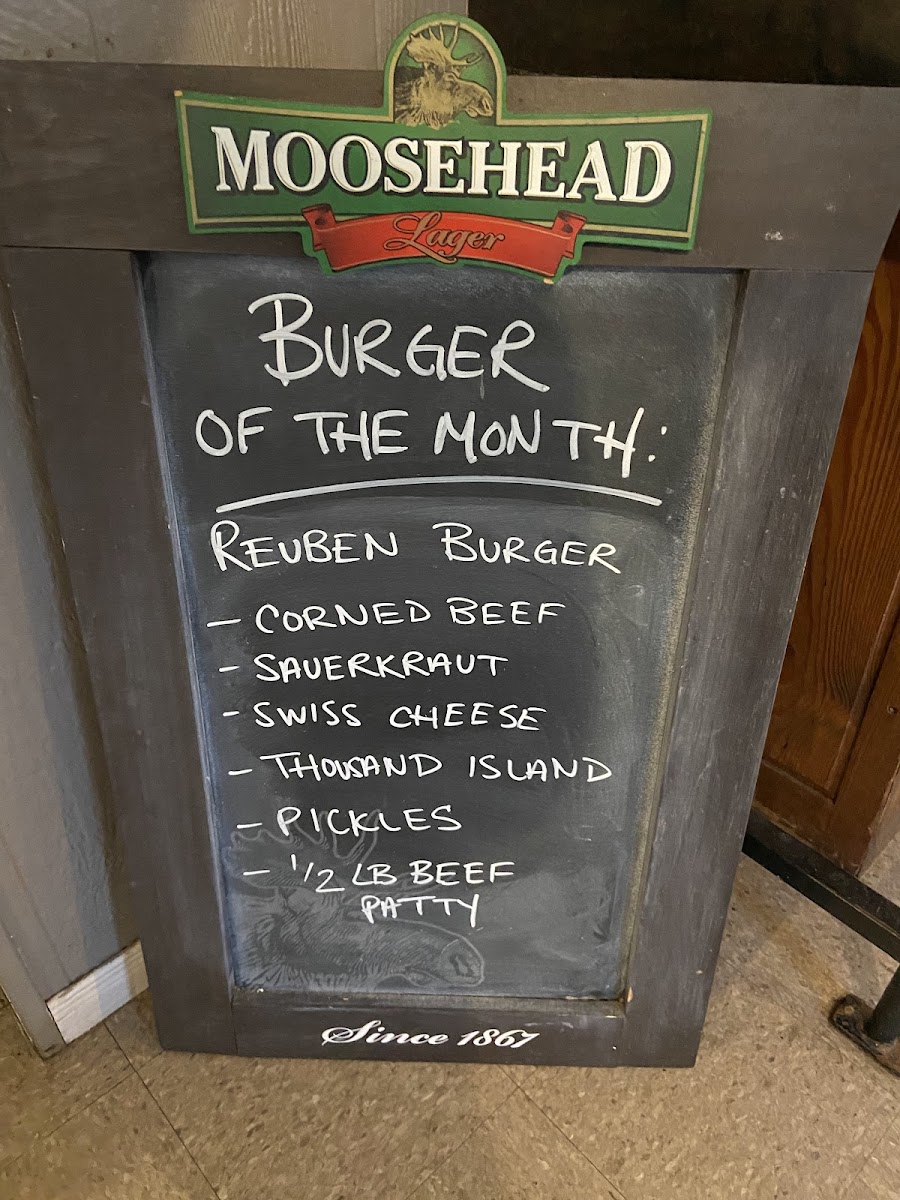 MOOSEHEAD
Lager
BURGER
OF THE MONTH:
REUBEN BURGER
- CORNED BEEF
- SAUERKRAUT
- SWISS CHEESE
- THOUSAND ISLAND
- PICKLES
- 1/2 LB BEEF
PATTY
Since 1867